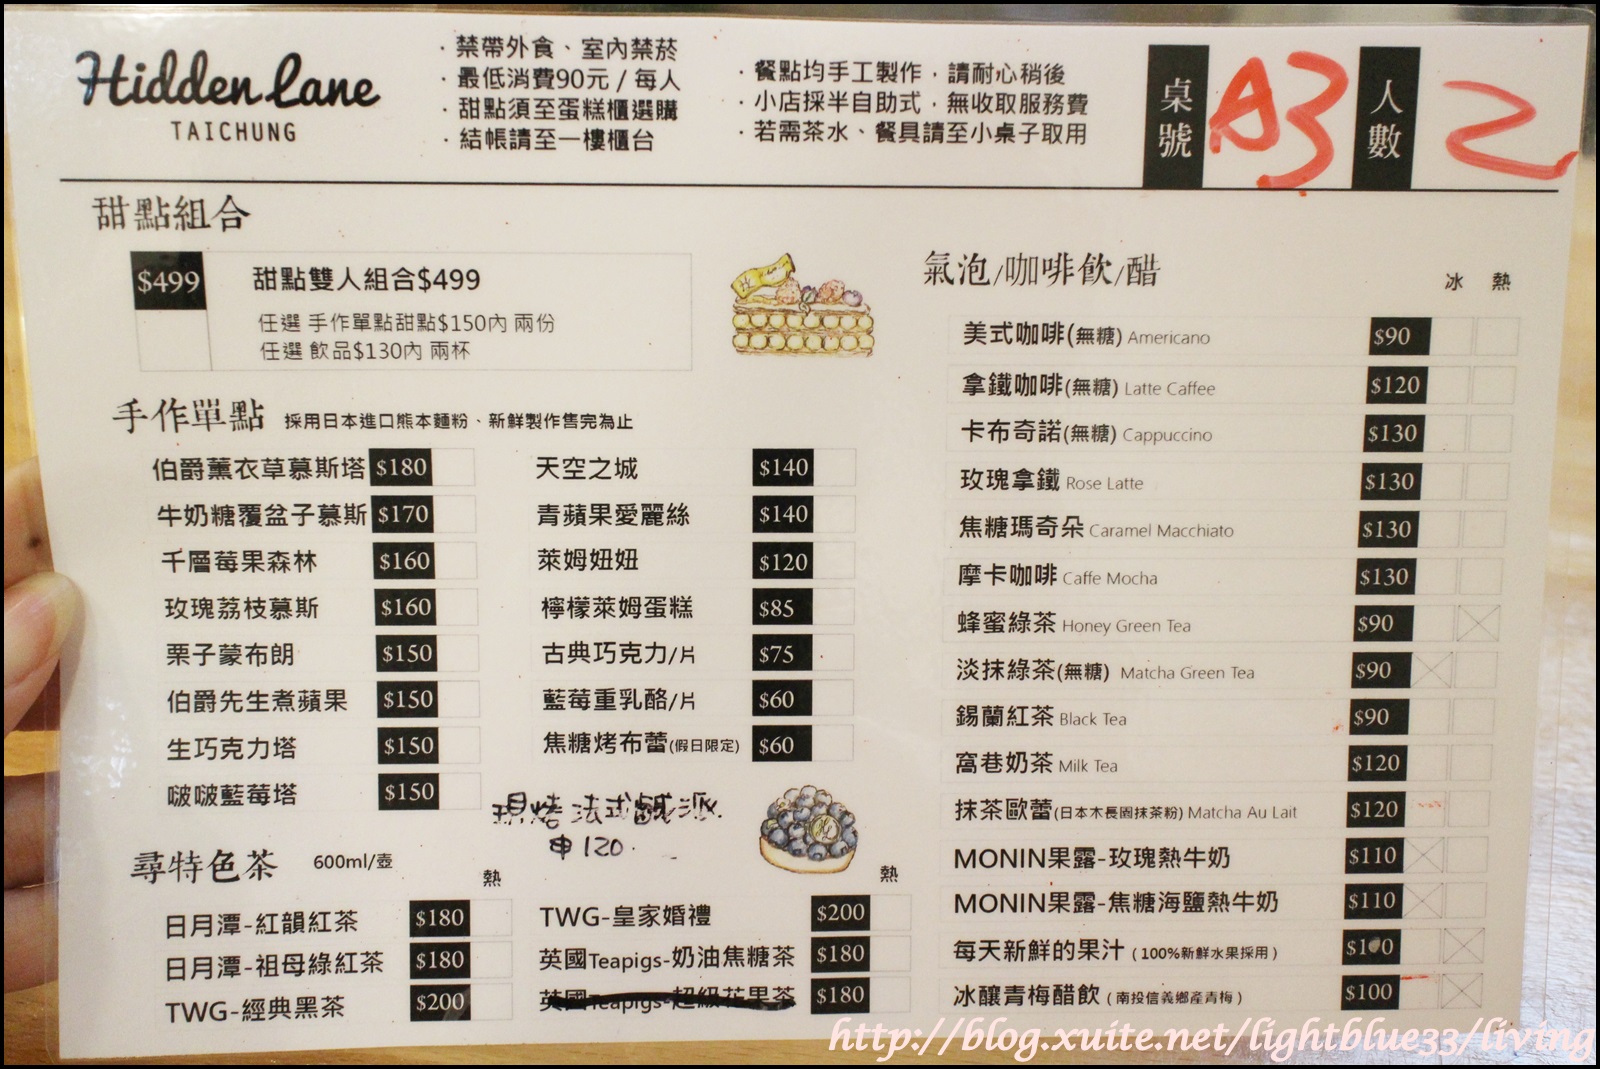 Hidden Lane
TAICHUNG
· 禁帶外食、室內禁菸
· 最低消費90元 / 每人
· 甜點須至蛋糕櫃選購
· 結帳請至一樓櫃台
· 餐點均手工製作，請耐心稍後
· 小店採半自助式，無收取服務費
· 若需茶水、餐具請至小桌子取用
桌號 A3 人數 2
甜點組合
$499 甜點雙人組合$499
任選 手作單點甜點$150內 兩份
任選 飲品$130內 兩杯
手作單點 採用日本進口熊本麵粉、新鮮製作售完為止
伯爵薰衣草慕斯塔 $180
牛奶糖覆盆子慕斯 $170
千層莓果森林 $160
玫瑰荔枝慕斯 $160
栗子蒙布朗 $150
伯爵先生煮蘋果 $150
生巧克力塔 $150
啵啵藍莓塔 $150
天空之城 $140
青蘋果愛麗絲 $140
萊姆妞妞 $120
檸檬萊姆蛋糕 $85
古典巧克力/片 $75
藍莓重乳酪/片 $60
焦糖烤布蕾(假日限定) $60
現烤法式鹹派
申120.
尋特色茶 600ml/壺
熱
日月潭-紅韻紅茶 $180
日月潭-祖母綠紅茶 $180
TWG-經典黑茶 $200
熱
TWG-皇家婚禮 $200
英國Teapigs-奶油焦糖茶 $180
英國Teapigs-超級花果茶 $180
氣泡/咖啡飲/醋
冰 熱
美式咖啡(無糖) Americano $90
拿鐵咖啡(無糖) Latte Caffee $120
卡布奇諾(無糖) Cappuccino $130
玫瑰拿鐵 Rose Latte $130
焦糖瑪奇朵 Caramel Macchiato $130
摩卡咖啡 Caffe Mocha $130
蜂蜜綠茶 Honey Green Tea $90
淡抹綠茶(無糖) Matcha Green Tea $90
錫蘭紅茶 Black Tea $90
窩巷奶茶 Milk Tea $120
抹茶歐蕾(日本木長園抹茶粉) Matcha Au Lait $120
MONIN果露-玫瑰熱牛奶 $110
MONIN果露-焦糖海鹽熱牛奶 $110
每天新鮮的果汁 ( 100%新鮮水果採用 ) $100
冰釀青梅醋飲 ( 南投信義鄉產青梅 ) $100
http://blog.xuite.net/lightblue33/living